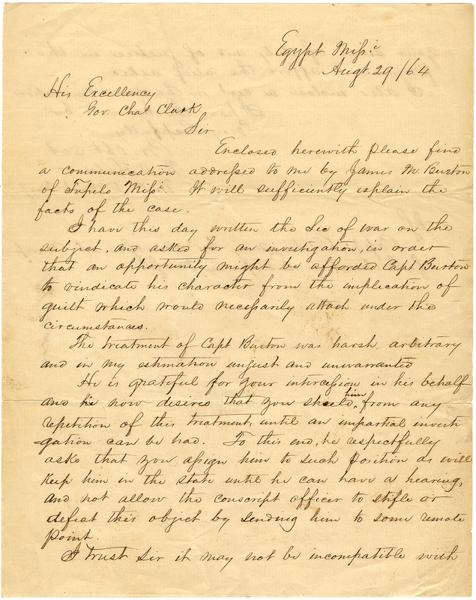 Egypt Missi
Augt 29/64
His Excellency
Gov. Chas Clark
Sir
Enclosed herewith please find
a communication addressed to me by James M. Burton
of Tupelo Missi. It will sufficiently explain the
facts of the case.
I have this day written the Sec of war on the
subject, and asked for an investigation, in order
that an opportunity might be afforded Capt Burton
to vindicate his character from the implication of
guilt which would necessarily attach under the
circumstances.
The treatment of Capt Burton was harsh, arbitrary
and in my estimation unjust and unwarranted
He is grateful for your intercession in his behalf
and he now desires that you shield him from any
repetition of this treatment, until an impartial investi
-gation can be had. To this end, he respectfully
asks that you assign him to such position as will
keep him in the state until he can have a hearing,
and not allow the conscript officer to stifle or
defeat this object by sending him to some remote
point.
I trust Sir it may not be incompatible with